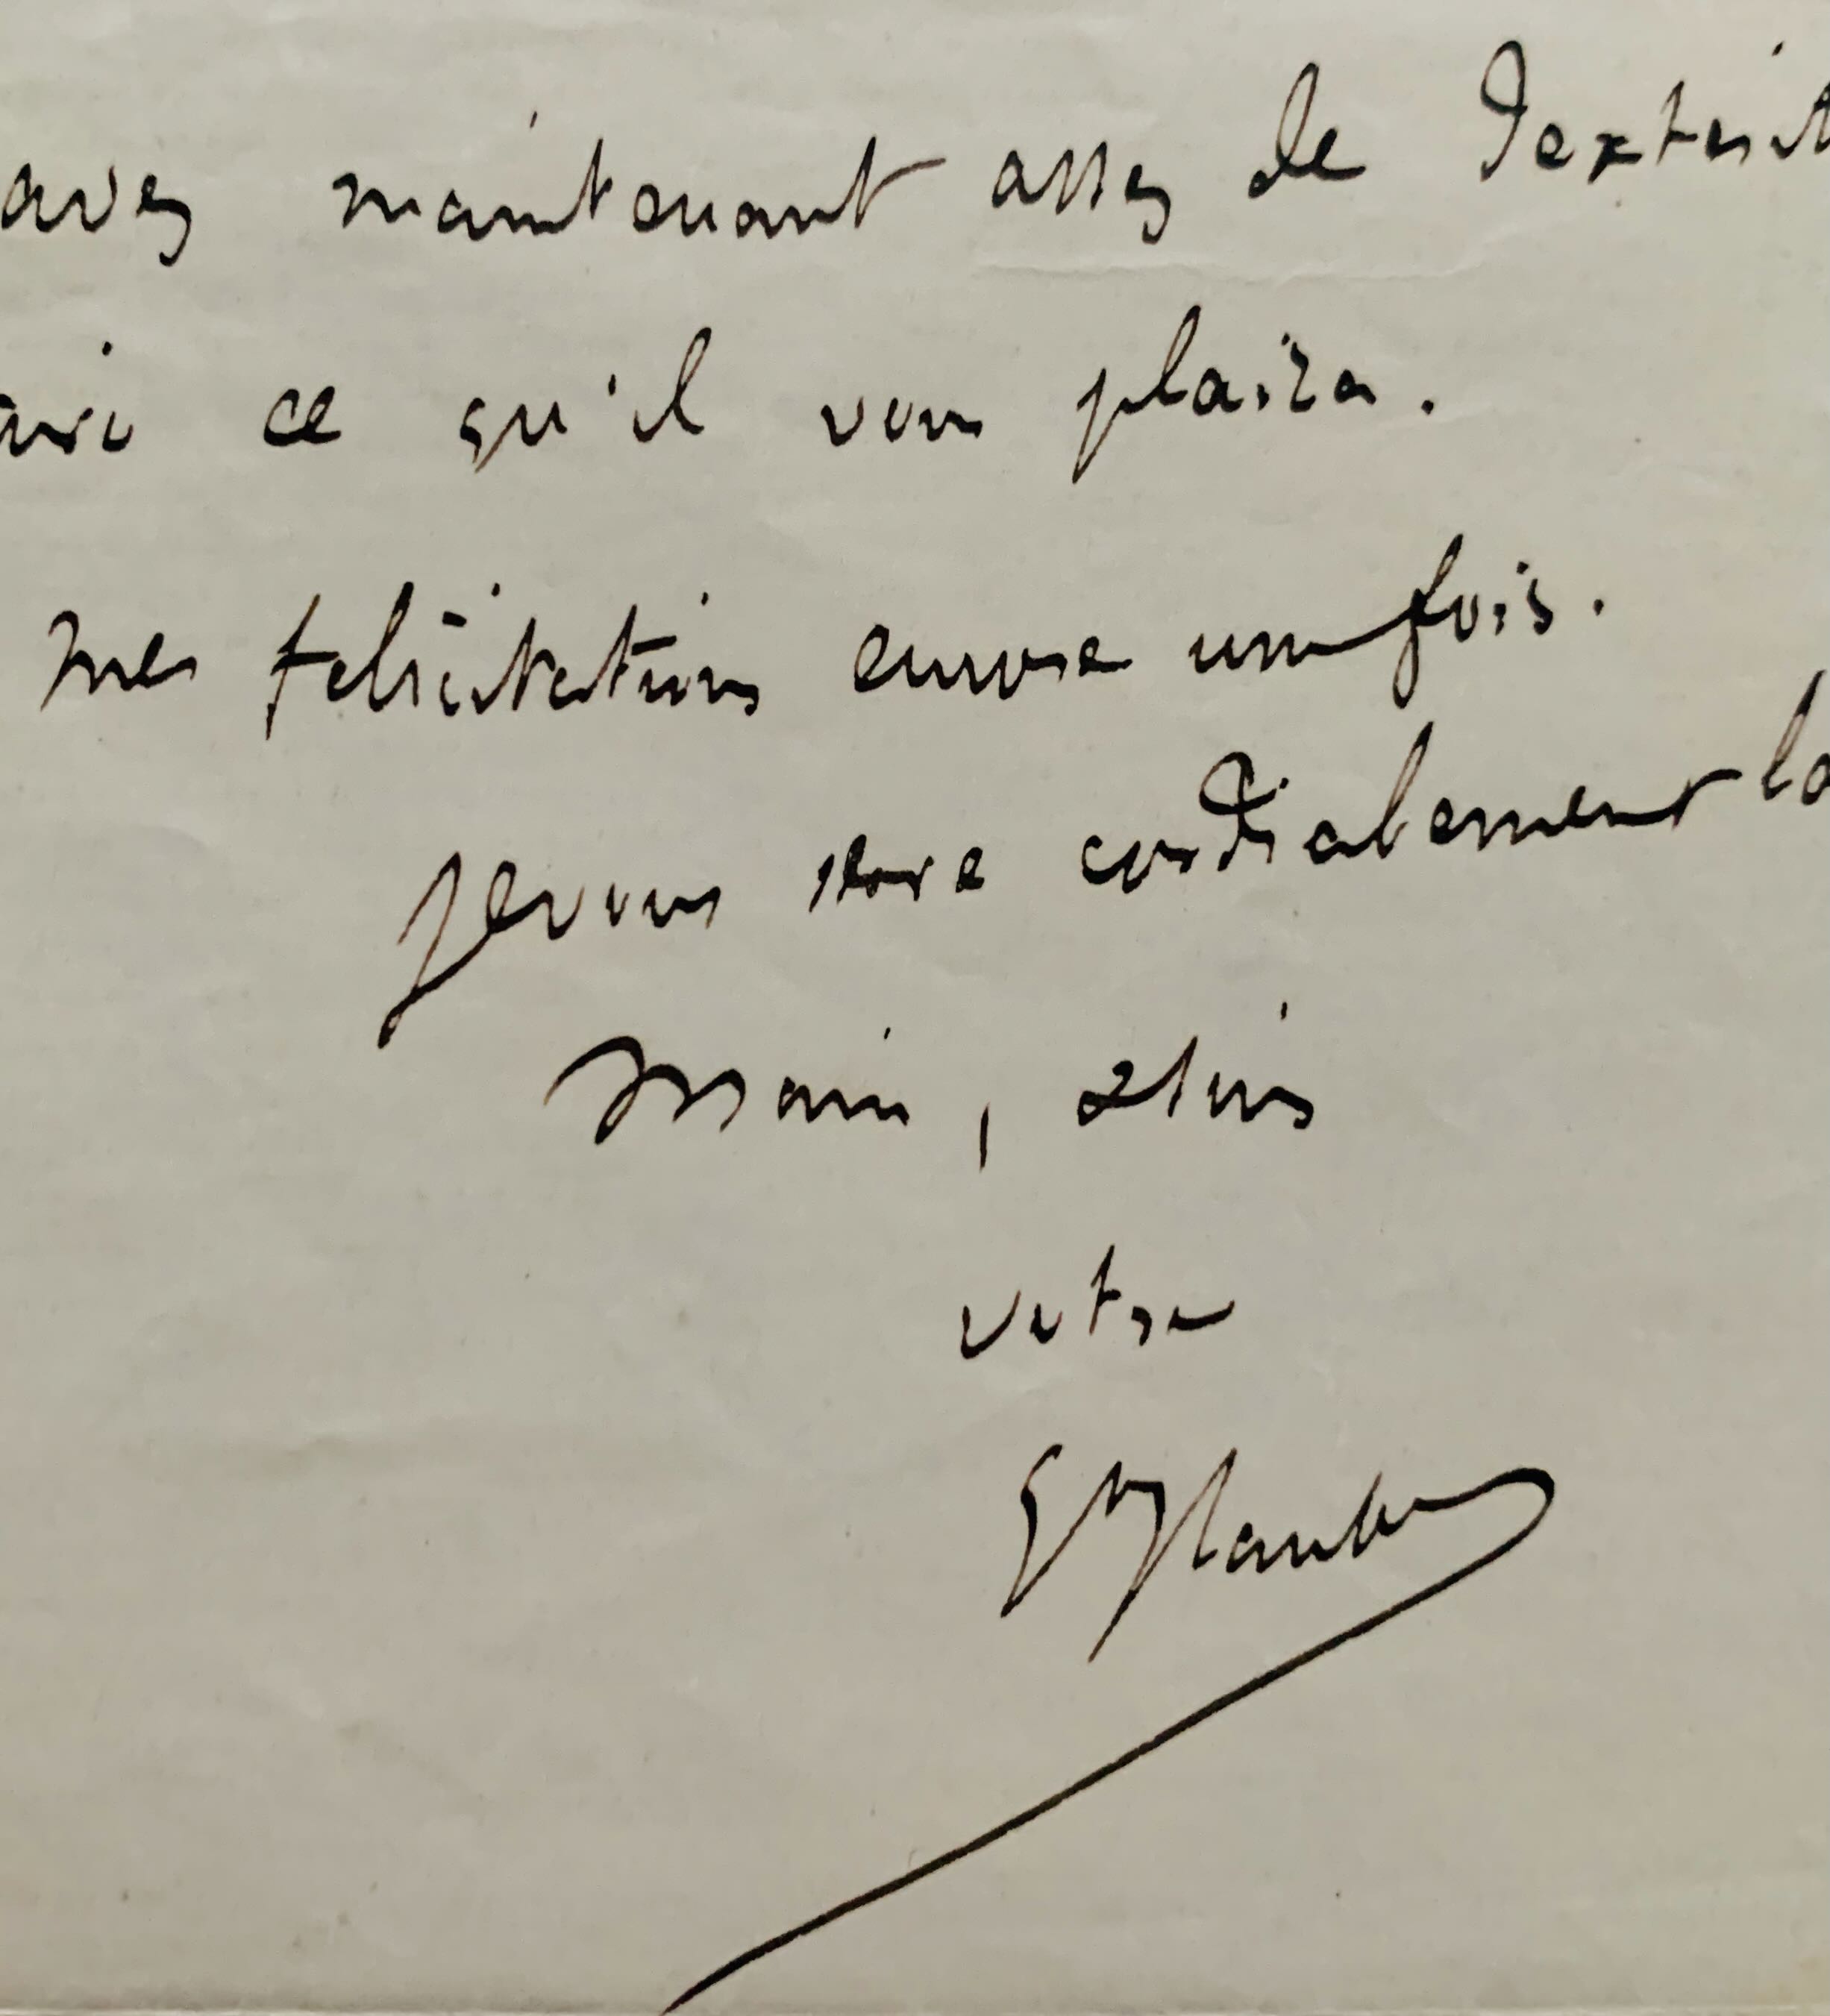 avez maintenant assez de dexterit
ce qu'il vous plaira.
Mes felicitations encore une fois.
Je vous serre cordialement la
main, & suis
votre
Gve Flaubert